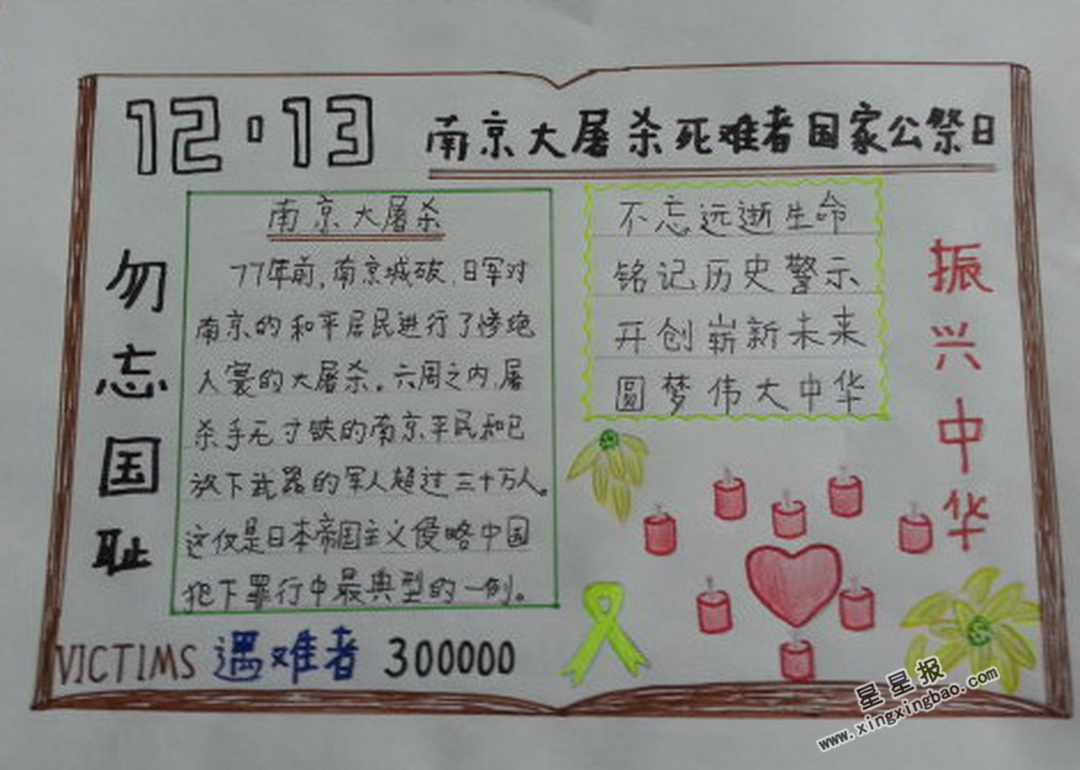 12·13
南京大屠杀死难者国家公祭日
勿忘国耻
南京大屠杀
77年前,南京城破,日军对
南京的和平居民进行了惨绝
人寰的大屠杀。六周之内,屠
杀手无寸铁的南京平民和已
放下武器的军人超过三十万人。
这仅是日本帝国主义侵略中国
犯下罪行中最典型的一例。
不忘远逝生命
铭记历史警示
开创崭新未来
圆梦伟大中华
振兴中华
VICTIMS 遇难者 300000
星星报
www.xingxingbao.com